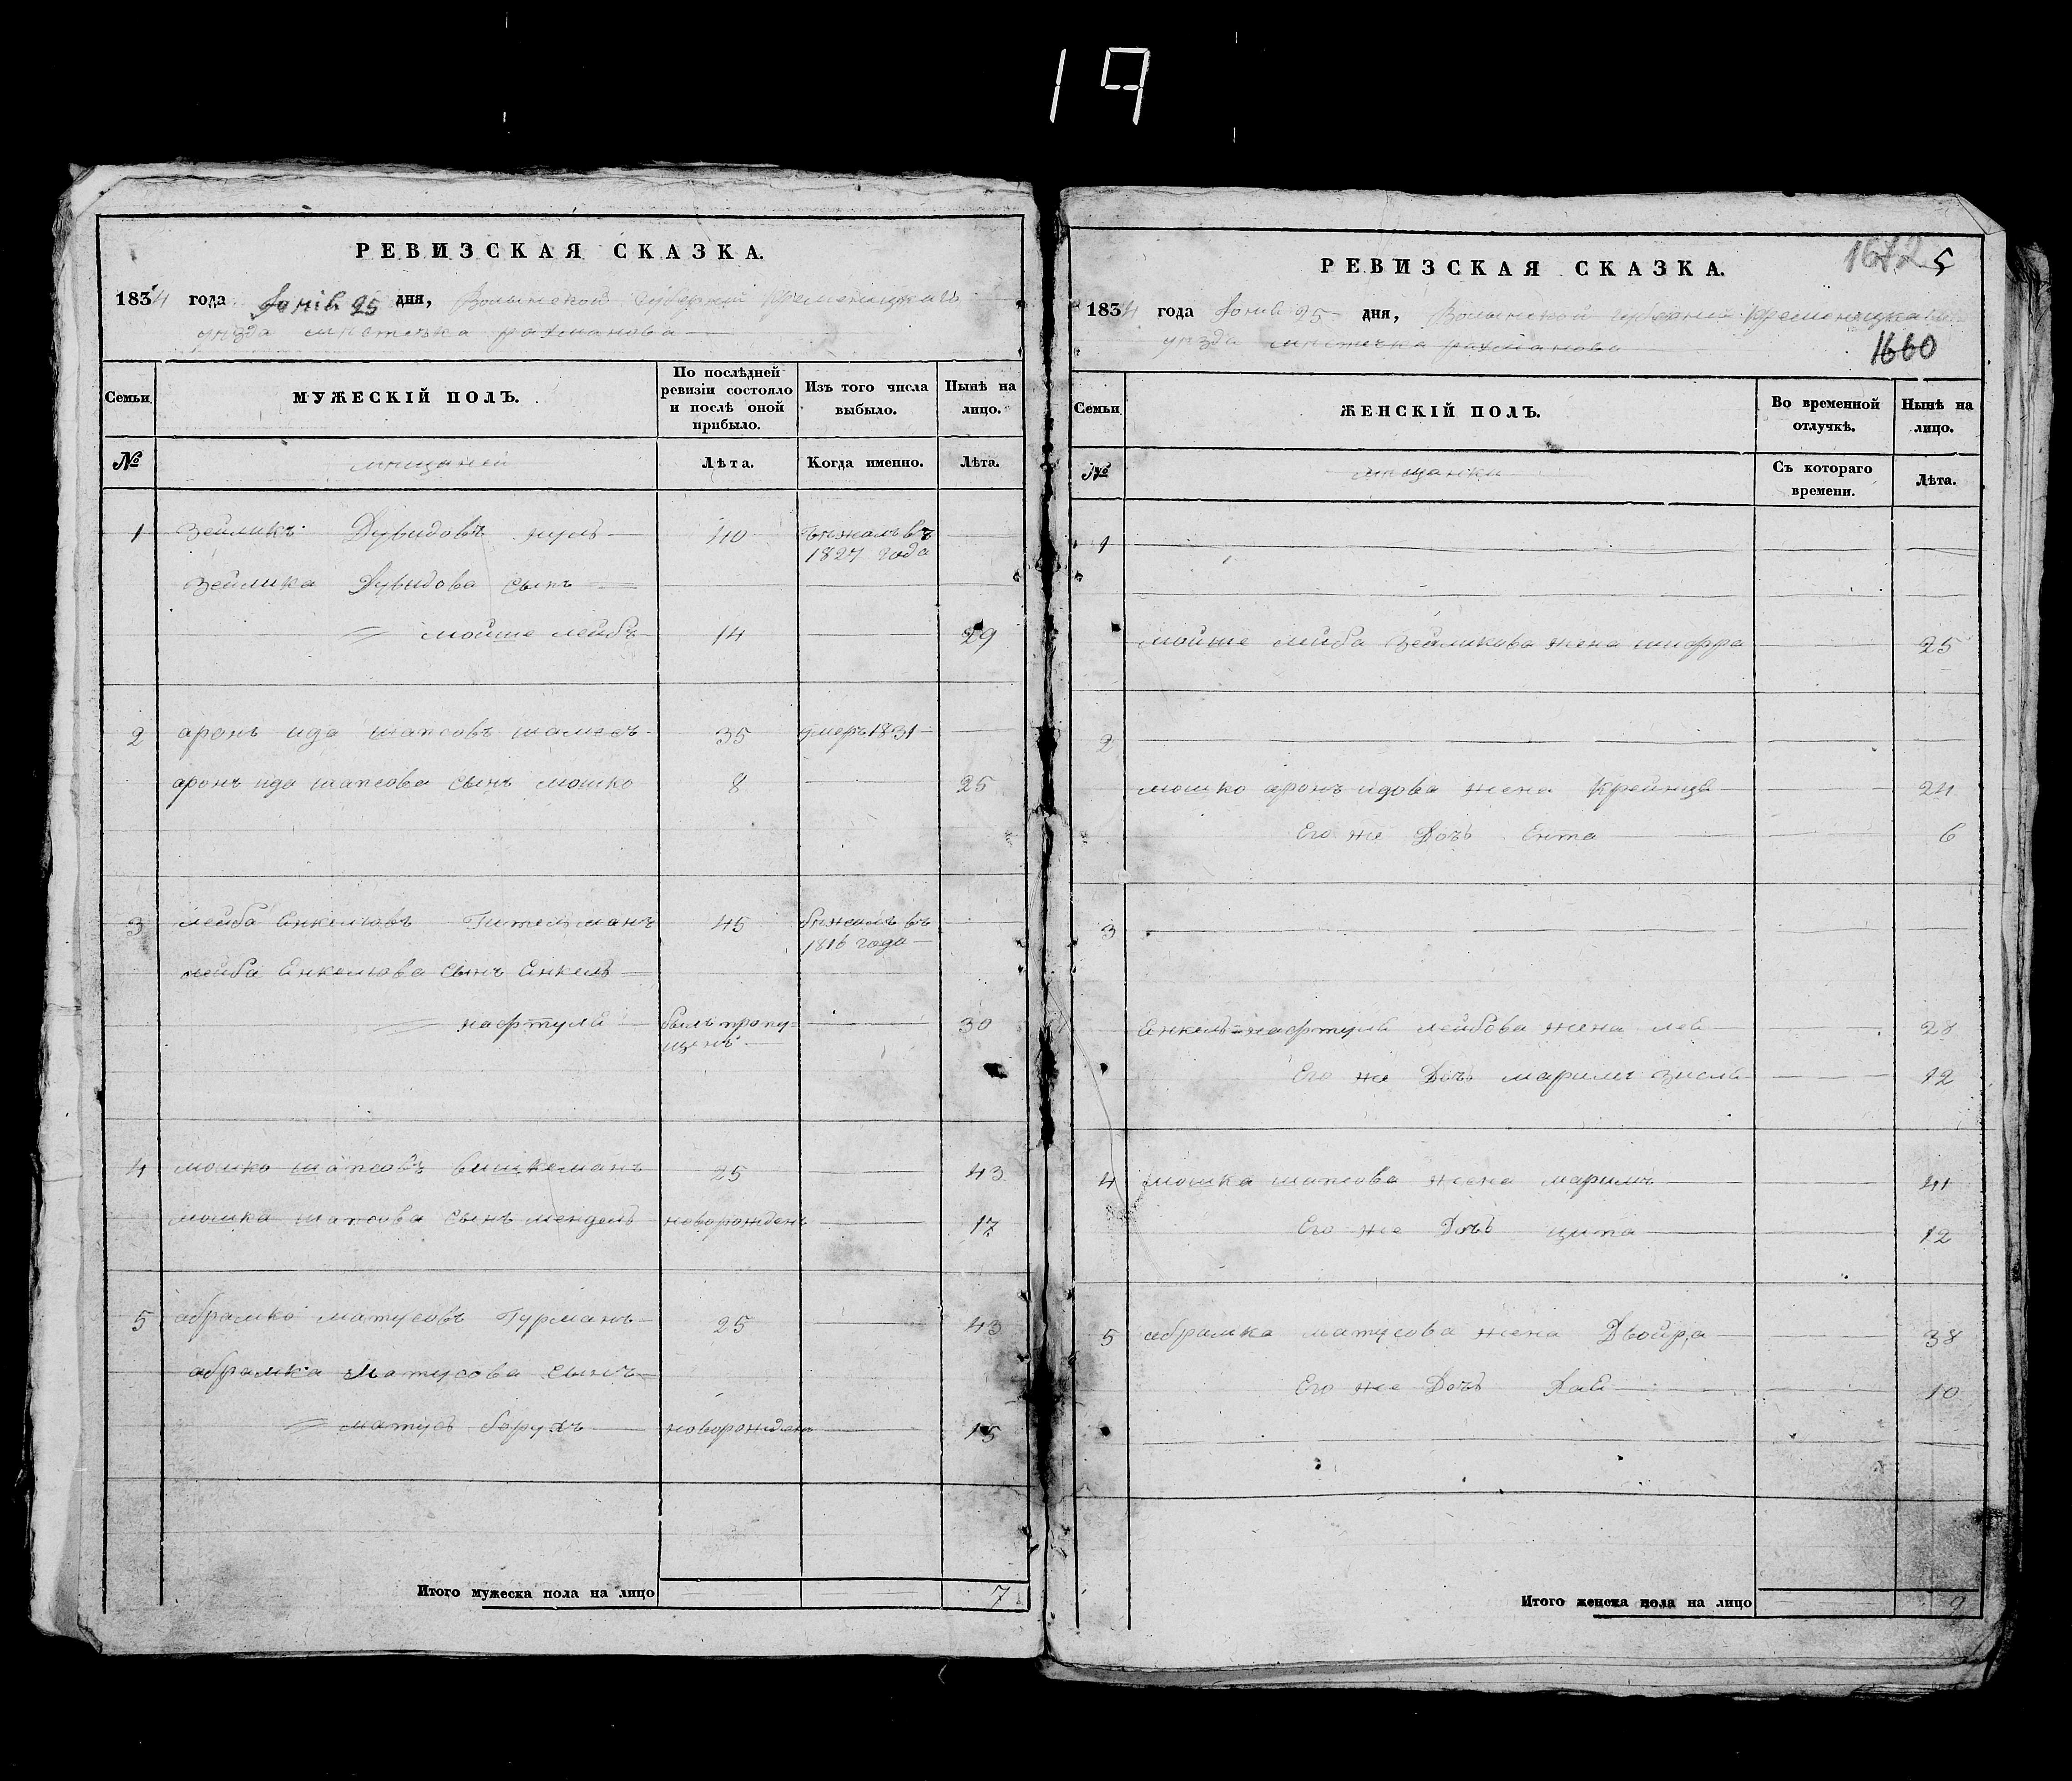 19
РЕВИЗСКАЯ СКАЗКА.
1834 года Іюнія 25 дня, Волынской Губерніи Кременецкаго
уѣзда мѣстечка рахманова
Семьи
МУЖЕСКІЙ ПОЛЪ.
По послѣдней ревизіи состояло и послѣ оной прибыло.
Изъ того числа выбыло.
Нынѣ на лицо.
№
мѣщаней
Лѣта.
Когда именно.
Лѣта.
1 Зейликъ Дувидовъ 40 бѣжалъ въ
1827 года
Зейлика Дувидова сынъ
мойше лейбъ 14 29
2 аронъ ида шапсовъ шамесъ 35 умеръ 1831
аронъ ида шапсова сынъ мошко 8 25
3 лейба Енкелювъ Гительманъ 45 бѣжалъ въ
1816 года
лейба Енкелюва сынъ Енкель
нафтула былъ пропу= 30
щенъ
4 мошко шапсовъ 25 43
мошка шапсова сынъ мендель новорожденъ 17
5 абрамко матусовъ Гурманъ 25 43
абрамка матусова сынъ
матусъ борухъ новорожденъ 15
Итого мужеска пола на лицо 7
1672 5
РЕВИЗСКАЯ СКАЗКА.
1834 года Іюнія 25 дня, Волынской Губерніи Кременецкаго
уѣзда мѣстечка рахманова
1660
Семьи
ЖЕНСКІЙ ПОЛЪ.
Во временной отлучкѣ.
Нынѣ на лицо.
№
мѣщанки
Съ котораго времени.
Лѣта.
1
мойше лейба Зейликова жена шифра 25
2
мошко аронъ идова жена Крейнця 24
Его же Дочь Ента 6
3
Енкель=нафтула лейбова жена лея 28
Его же Дочь маримъ зисля 12
4 мошка шапсова жена маримъ 41
Его же Дочь цита 12
5 абрамка матусова жена Двойра 38
Его же Дочь Хая 10
Итого женска пола на лицо 9